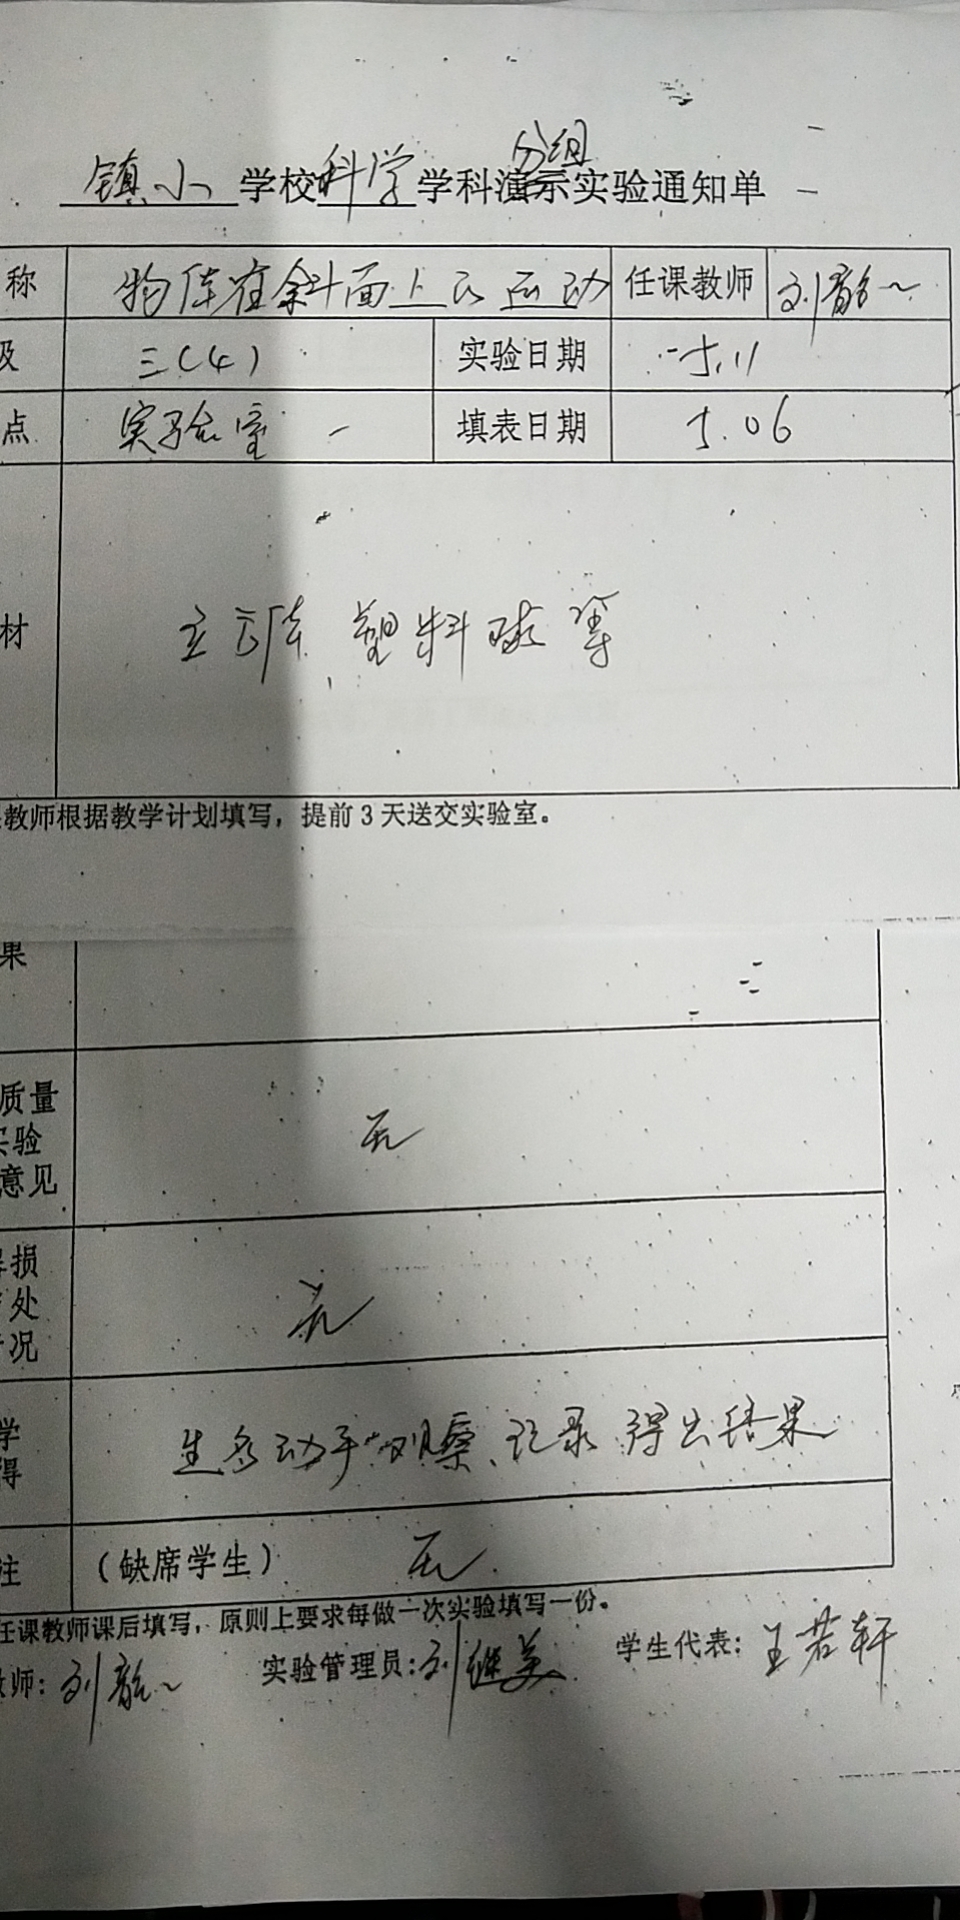 分组
镇小学校科学学科演示实验通知单
称 物体在斜面上的运动 任课教师 刘韵
及 三(4) 实验日期 5.11
点 实验室一 填表日期 5.06
材 立方体、塑料球等
教师根据教学计划填写，提前3天送交实验室。
果
质量
实验
意见 无
损
处
况 无
学
得 生多动手观察、记录、得出结果
注 (缺席学生) 无
任课教师课后填写，原则上要求每做一次实验填写一份。
师: 刘韵 实验管理员: 刘继美 学生代表: 王若轩